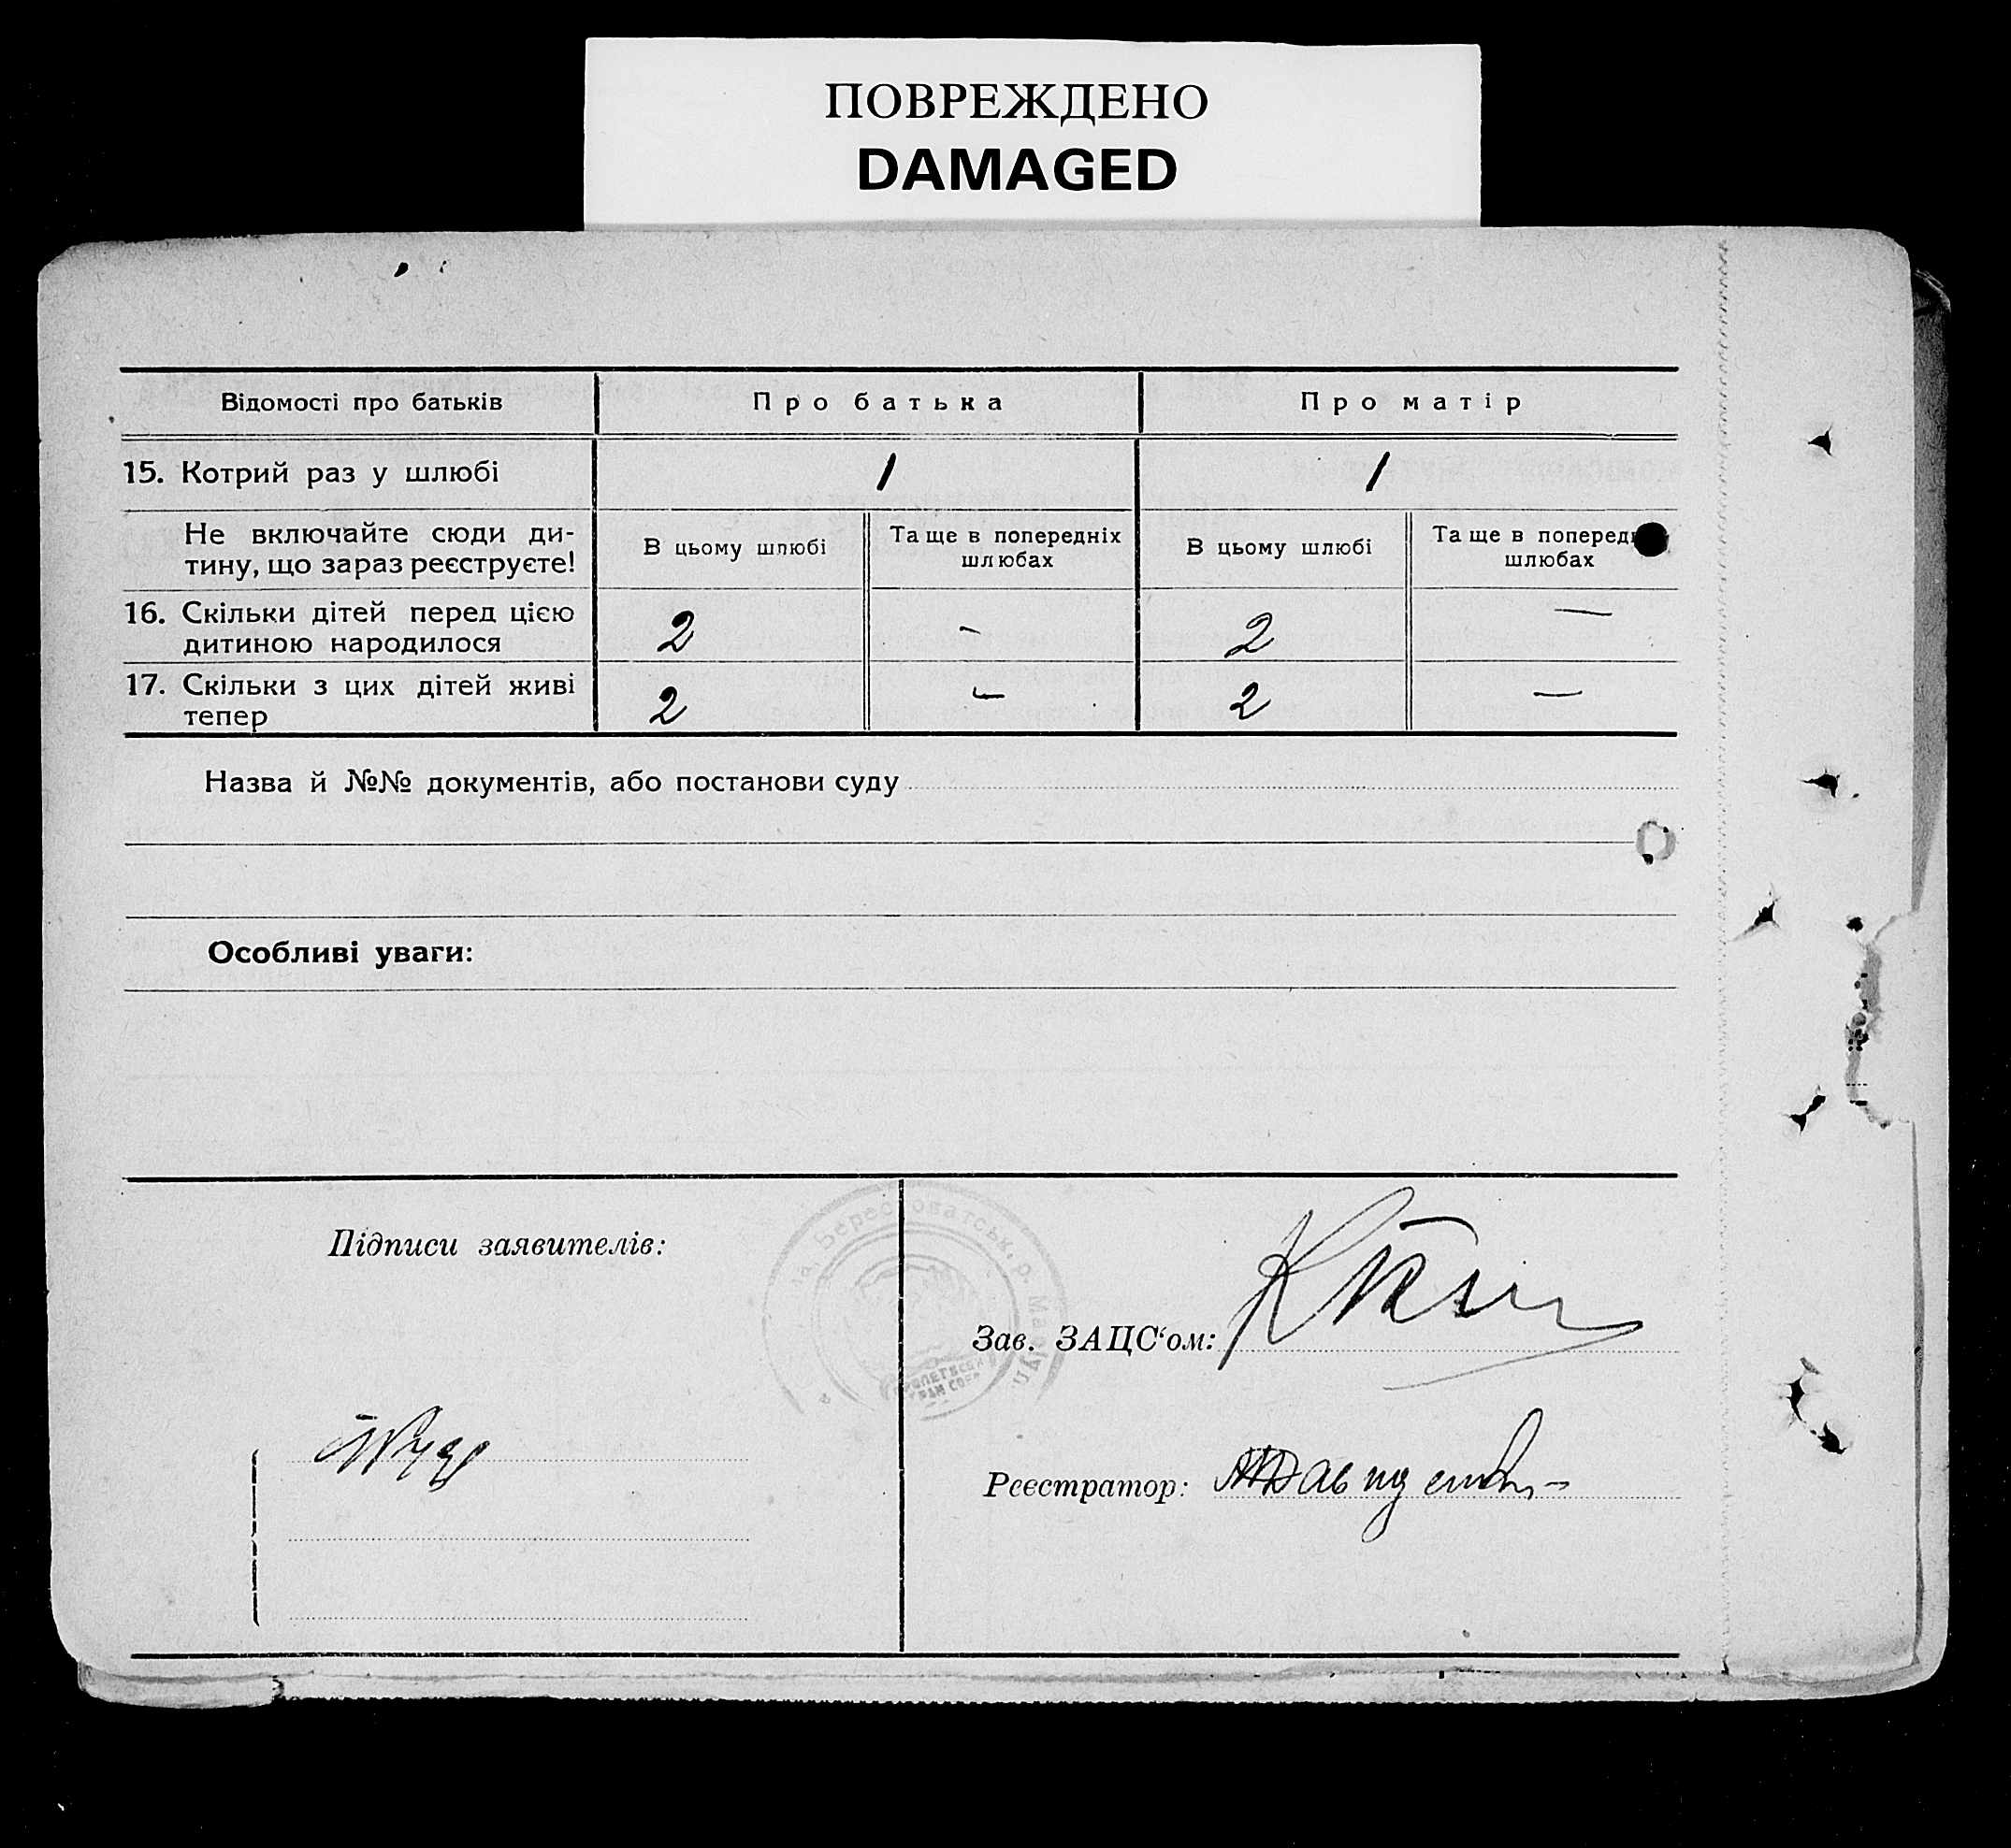 ПОВРЕЖДЕНО
DAMAGED
Відомості про батьків
Про батька
Про матір
15. Котрий раз у шлюбі
1
1
Не включайте сюди ди-
тину, що зараз реєструєте!
В цьому шлюбі
Та ще в попередніх
шлюбах
В цьому шлюбі
Та ще в поперед
шлюбах
16. Скільки дітей перед цією
дитиною народилося
2
-
2
—
17. Скільки з цих дітей живі
тепер
2
-
2
—
Назва й №№ документів, або постанови суду
Особливі уваги:
Підписи заявителів:
Зав. ЗАЦС‘ом:
Реєстратор: